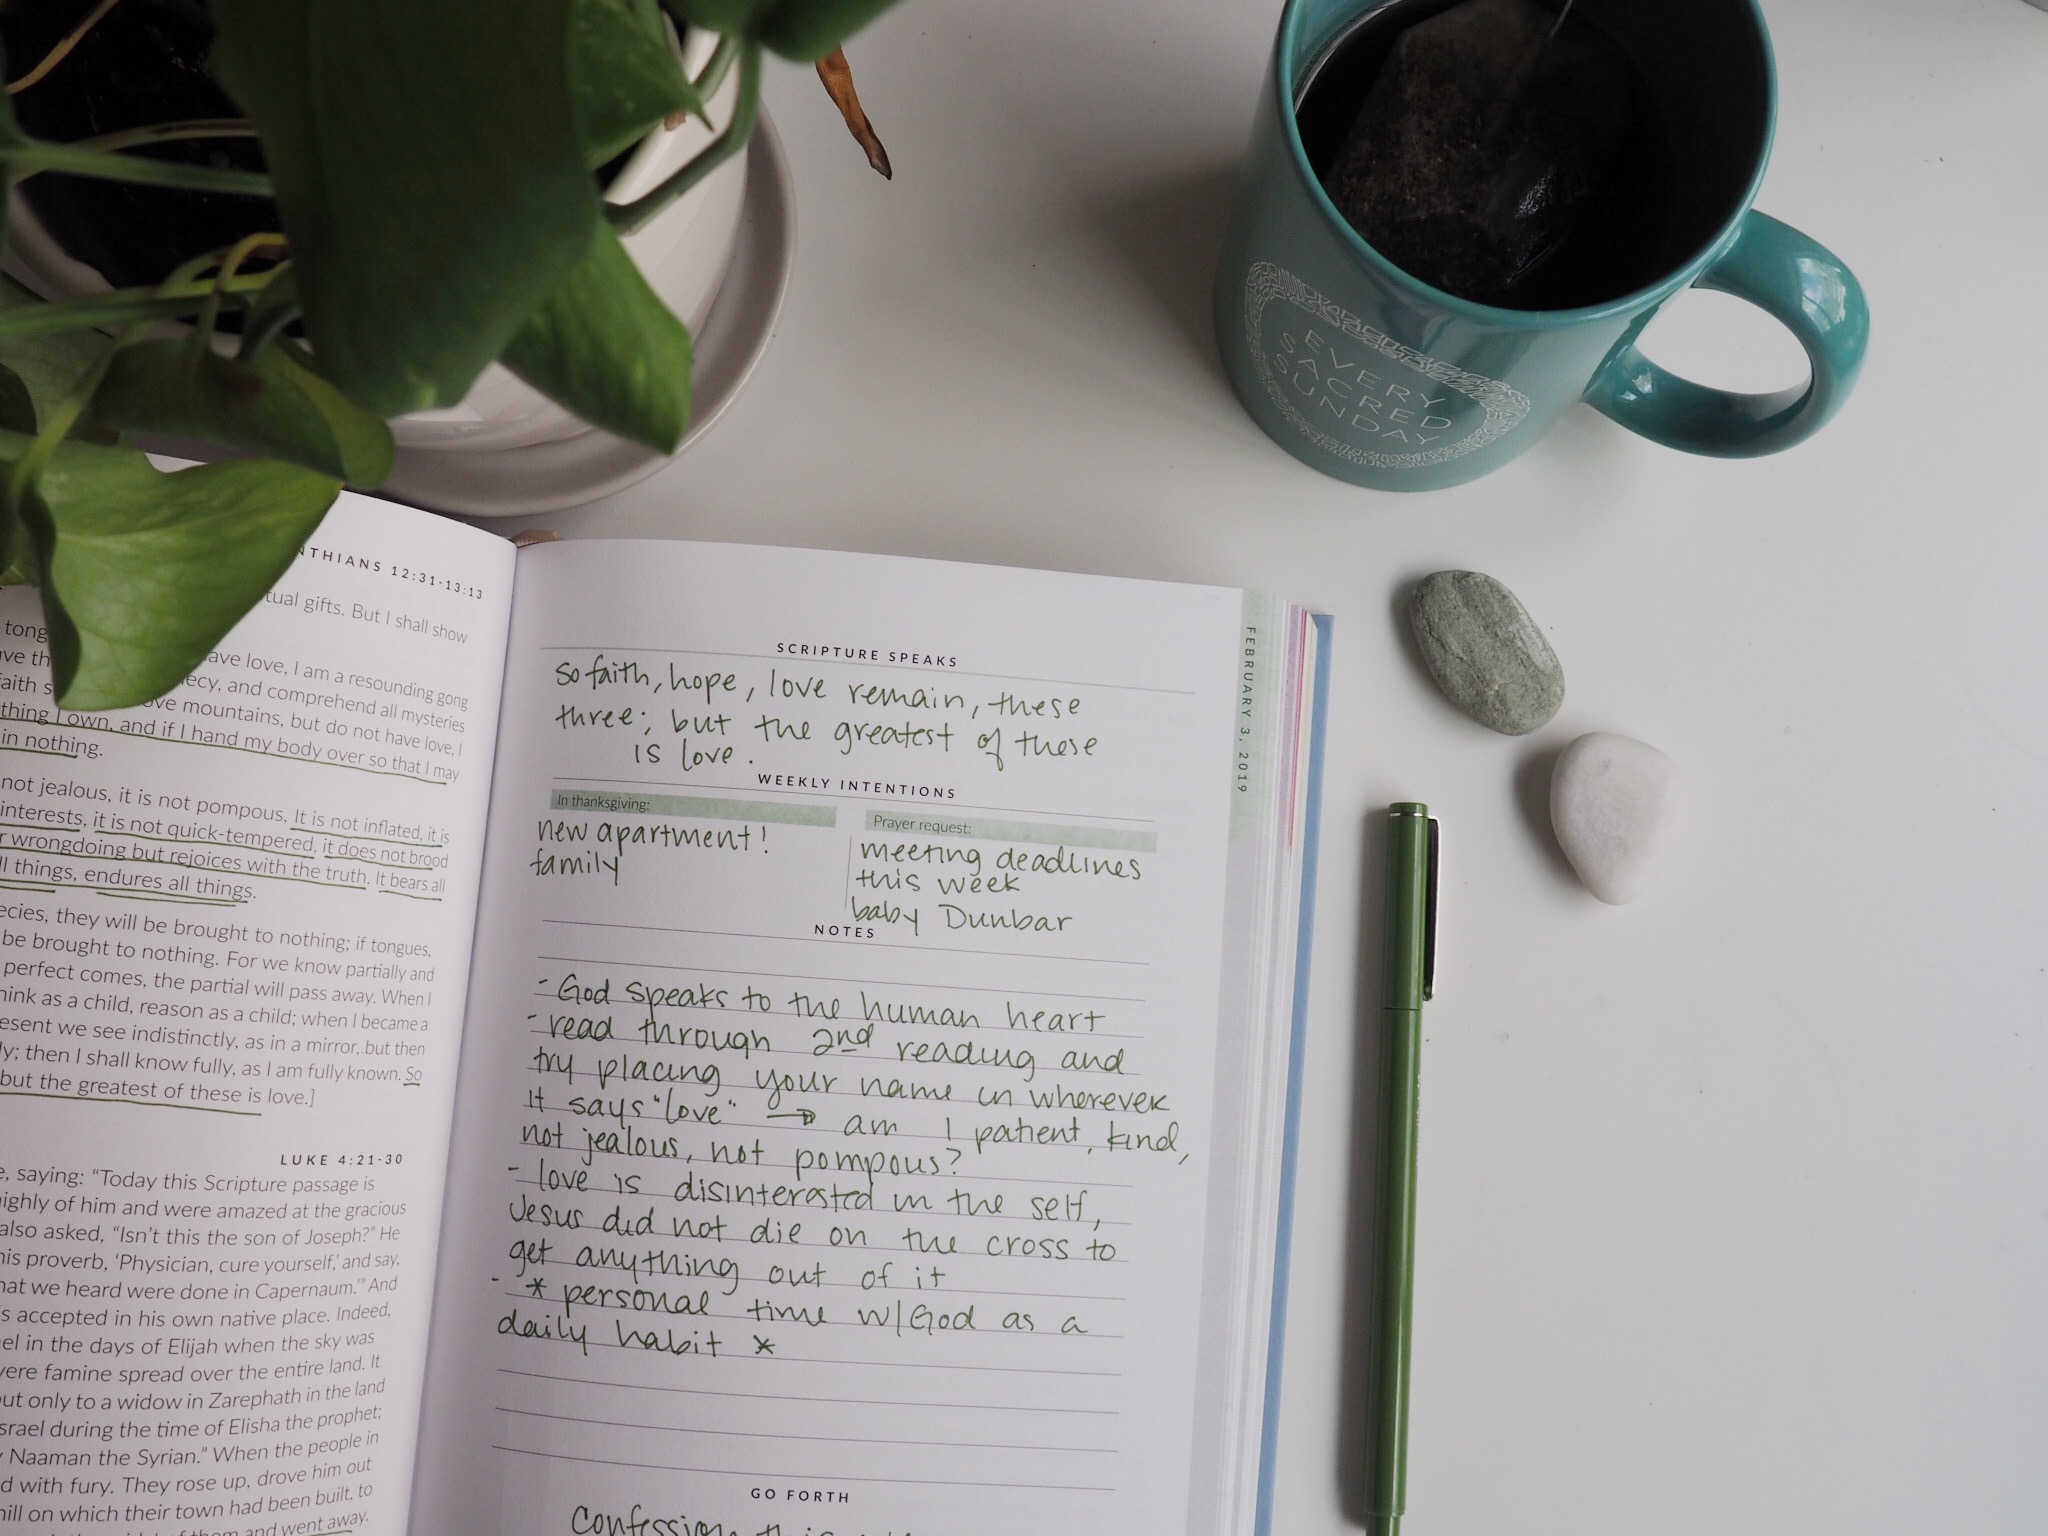 EVERY
SACRED
SUNDAY
NTHIANS 12:31-13:13
tual gifts. But I shall show
have love, I am a resounding gong
and comprehend all mysteries
mountains, but do not have love, I
thing I own, and if I hand my body over so that I may
in nothing.
not jealous, it is not pompous, It is not inflated, it is
interests, it is not quick-tempered, it does not brood
r wrongdoing but rejoices with the truth. It bears all
ll things, endures all things.
ecies, they will be brought to nothing; if tongues,
be brought to nothing. For we know partially and
perfect comes, the partial will pass away. When I
hink as a child, reason as a child; when I became a
esent we see indistinctly, as in a mirror, but then
ly; then I shall know fully, as I am fully known. So
but the greatest of these is love.]
LUKE 4:21-30
e, saying: "Today this Scripture passage is
highly of him and were amazed at the gracious
also asked, "Isn't this the son of Joseph?" He
his proverb, 'Physician, cure yourself,' and say,
hat we heard were done in Capernaum.'" And
is accepted in his own native place. Indeed,
el in the days of Elijah when the sky was
vere famine spread over the entire land. It
out only to a widow in Zarephath in the land
srael during the time of Elisha the prophet;
y Naaman the Syrian." When the people in
d with fury. They rose up, drove him out
hill on which their town had been built, to
of them and went away.
SCRIPTURE SPEAKS
So faith, hope, love remain, these
three; but the greatest of these
is love.
WEEKLY INTENTIONS
In thanksgiving:
new apartment!
family
Prayer request:
meeting deadlines
this week
baby Dunbar
NOTES
- God speaks to the human heart
- read through 2nd reading and
try placing your name in wherever
it says "love" → am I patient, kind,
not jealous, not pompous?
- love is disinterested in the self,
Jesus did not die on the cross to
get anything out of it
- * personal time w/God as a
daily habit *
GO FORTH
Confession this
FEBRUARY 3, 2019